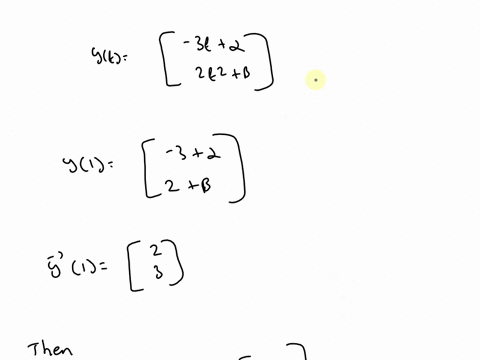 y(t) = [ -3t + 2
2t2 + B ]
y(1) = [ -3 + 2
2 + B ]
y(1) = [ 2
3 ]
Then